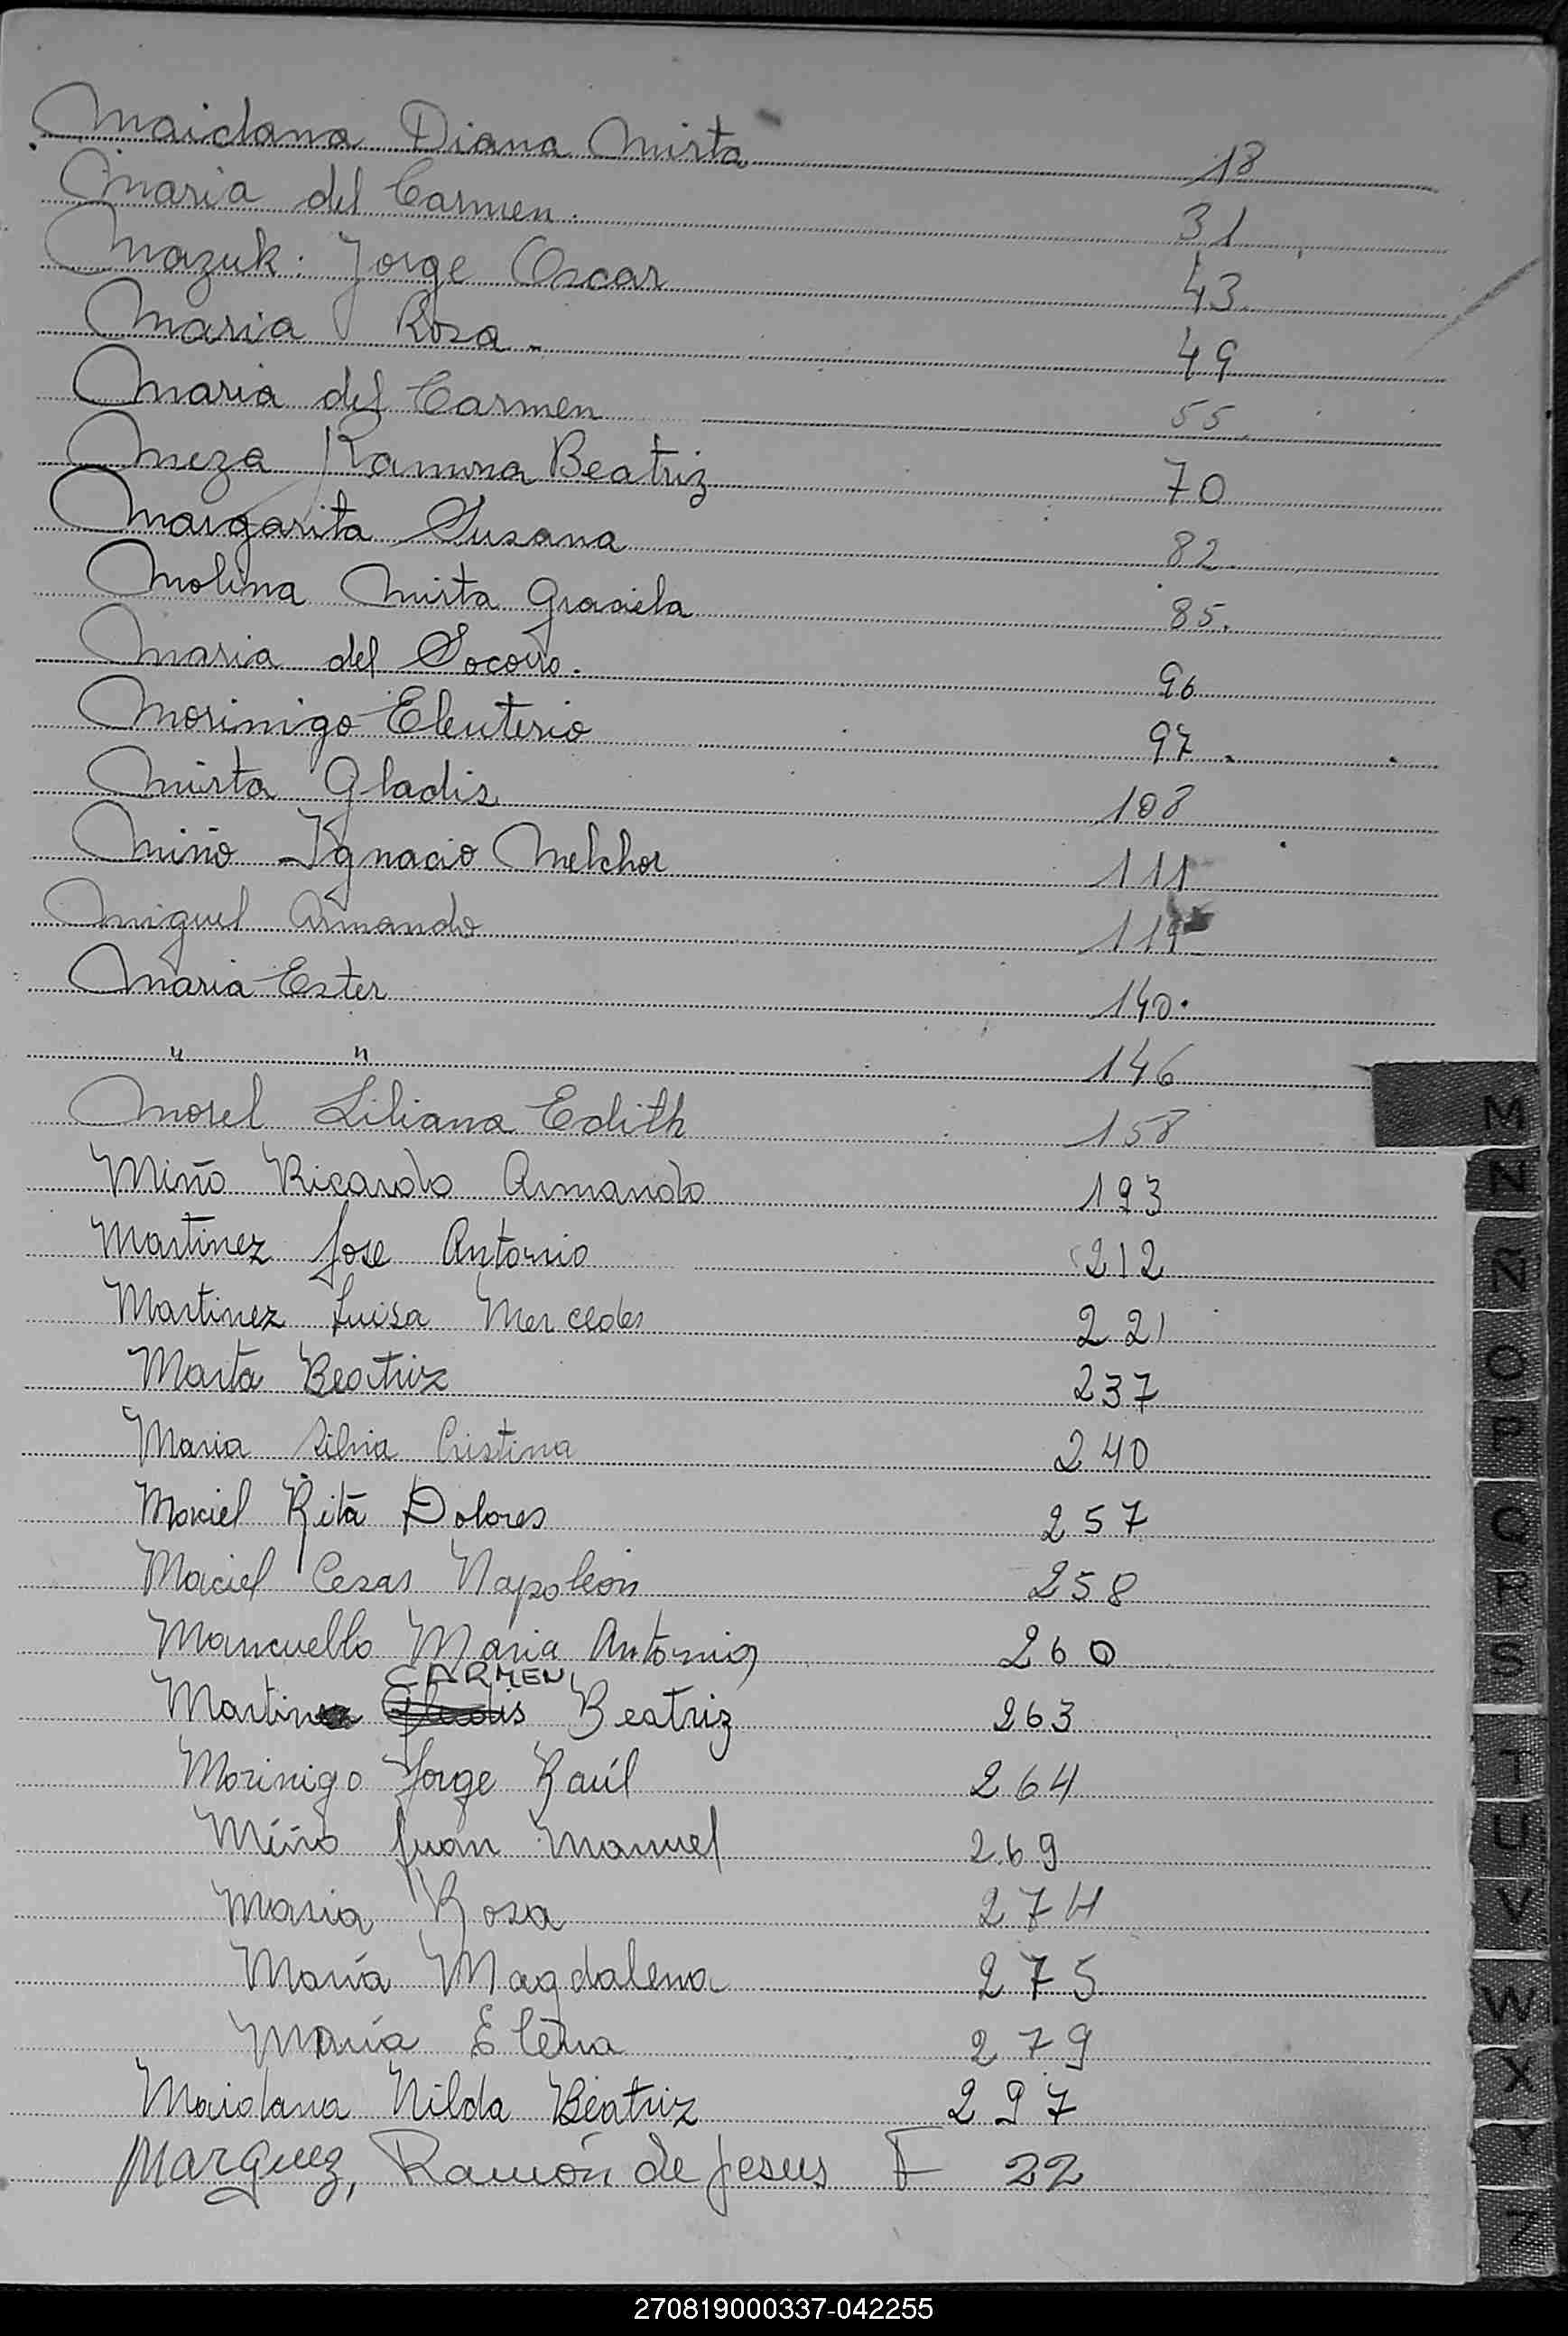 Maidana Diana Mirta 18
Maria del Carmen. 31
Mazuk: Jorge Oscar 43
Maria Rosa. 49
Maria del Carmen 55
Meza Ramona Beatriz 70
Margarita Susana 82
Molina Mirta Graciela 85.
Maria del Socorro. 96
Morinigo Eleuterio 97.
Mirta Gladis 108
Miño Ignacio Melchor 111
Miguel Armando 119
Maria Ester 140.
" " 146
Morel Liliana Edith 158
Miño Ricardo Armando 193
Martinez Jose Antonio 212
Martinez Luisa Mercedes 221
Marta Beatriz 237
Maria Silvia Cristina 240
Maciel Rita Dolores 257
Maciel Cesar Napoleón 258
Mancuello Maria Antonia 260
CARMEN
Martina Gladis Beatriz 263
Morinigo Jorge Raúl 264
Miño Juan Manuel 269
Maria Rosa 274
María Magdalena 275
María Elena 279
Maidana Nilda Beatriz 297
Marquez, Ramón de Jesus F 22
M
N
Ñ
O
P
Q
R
S
T
U
V
W
X
Y
Z
270819000337-042255